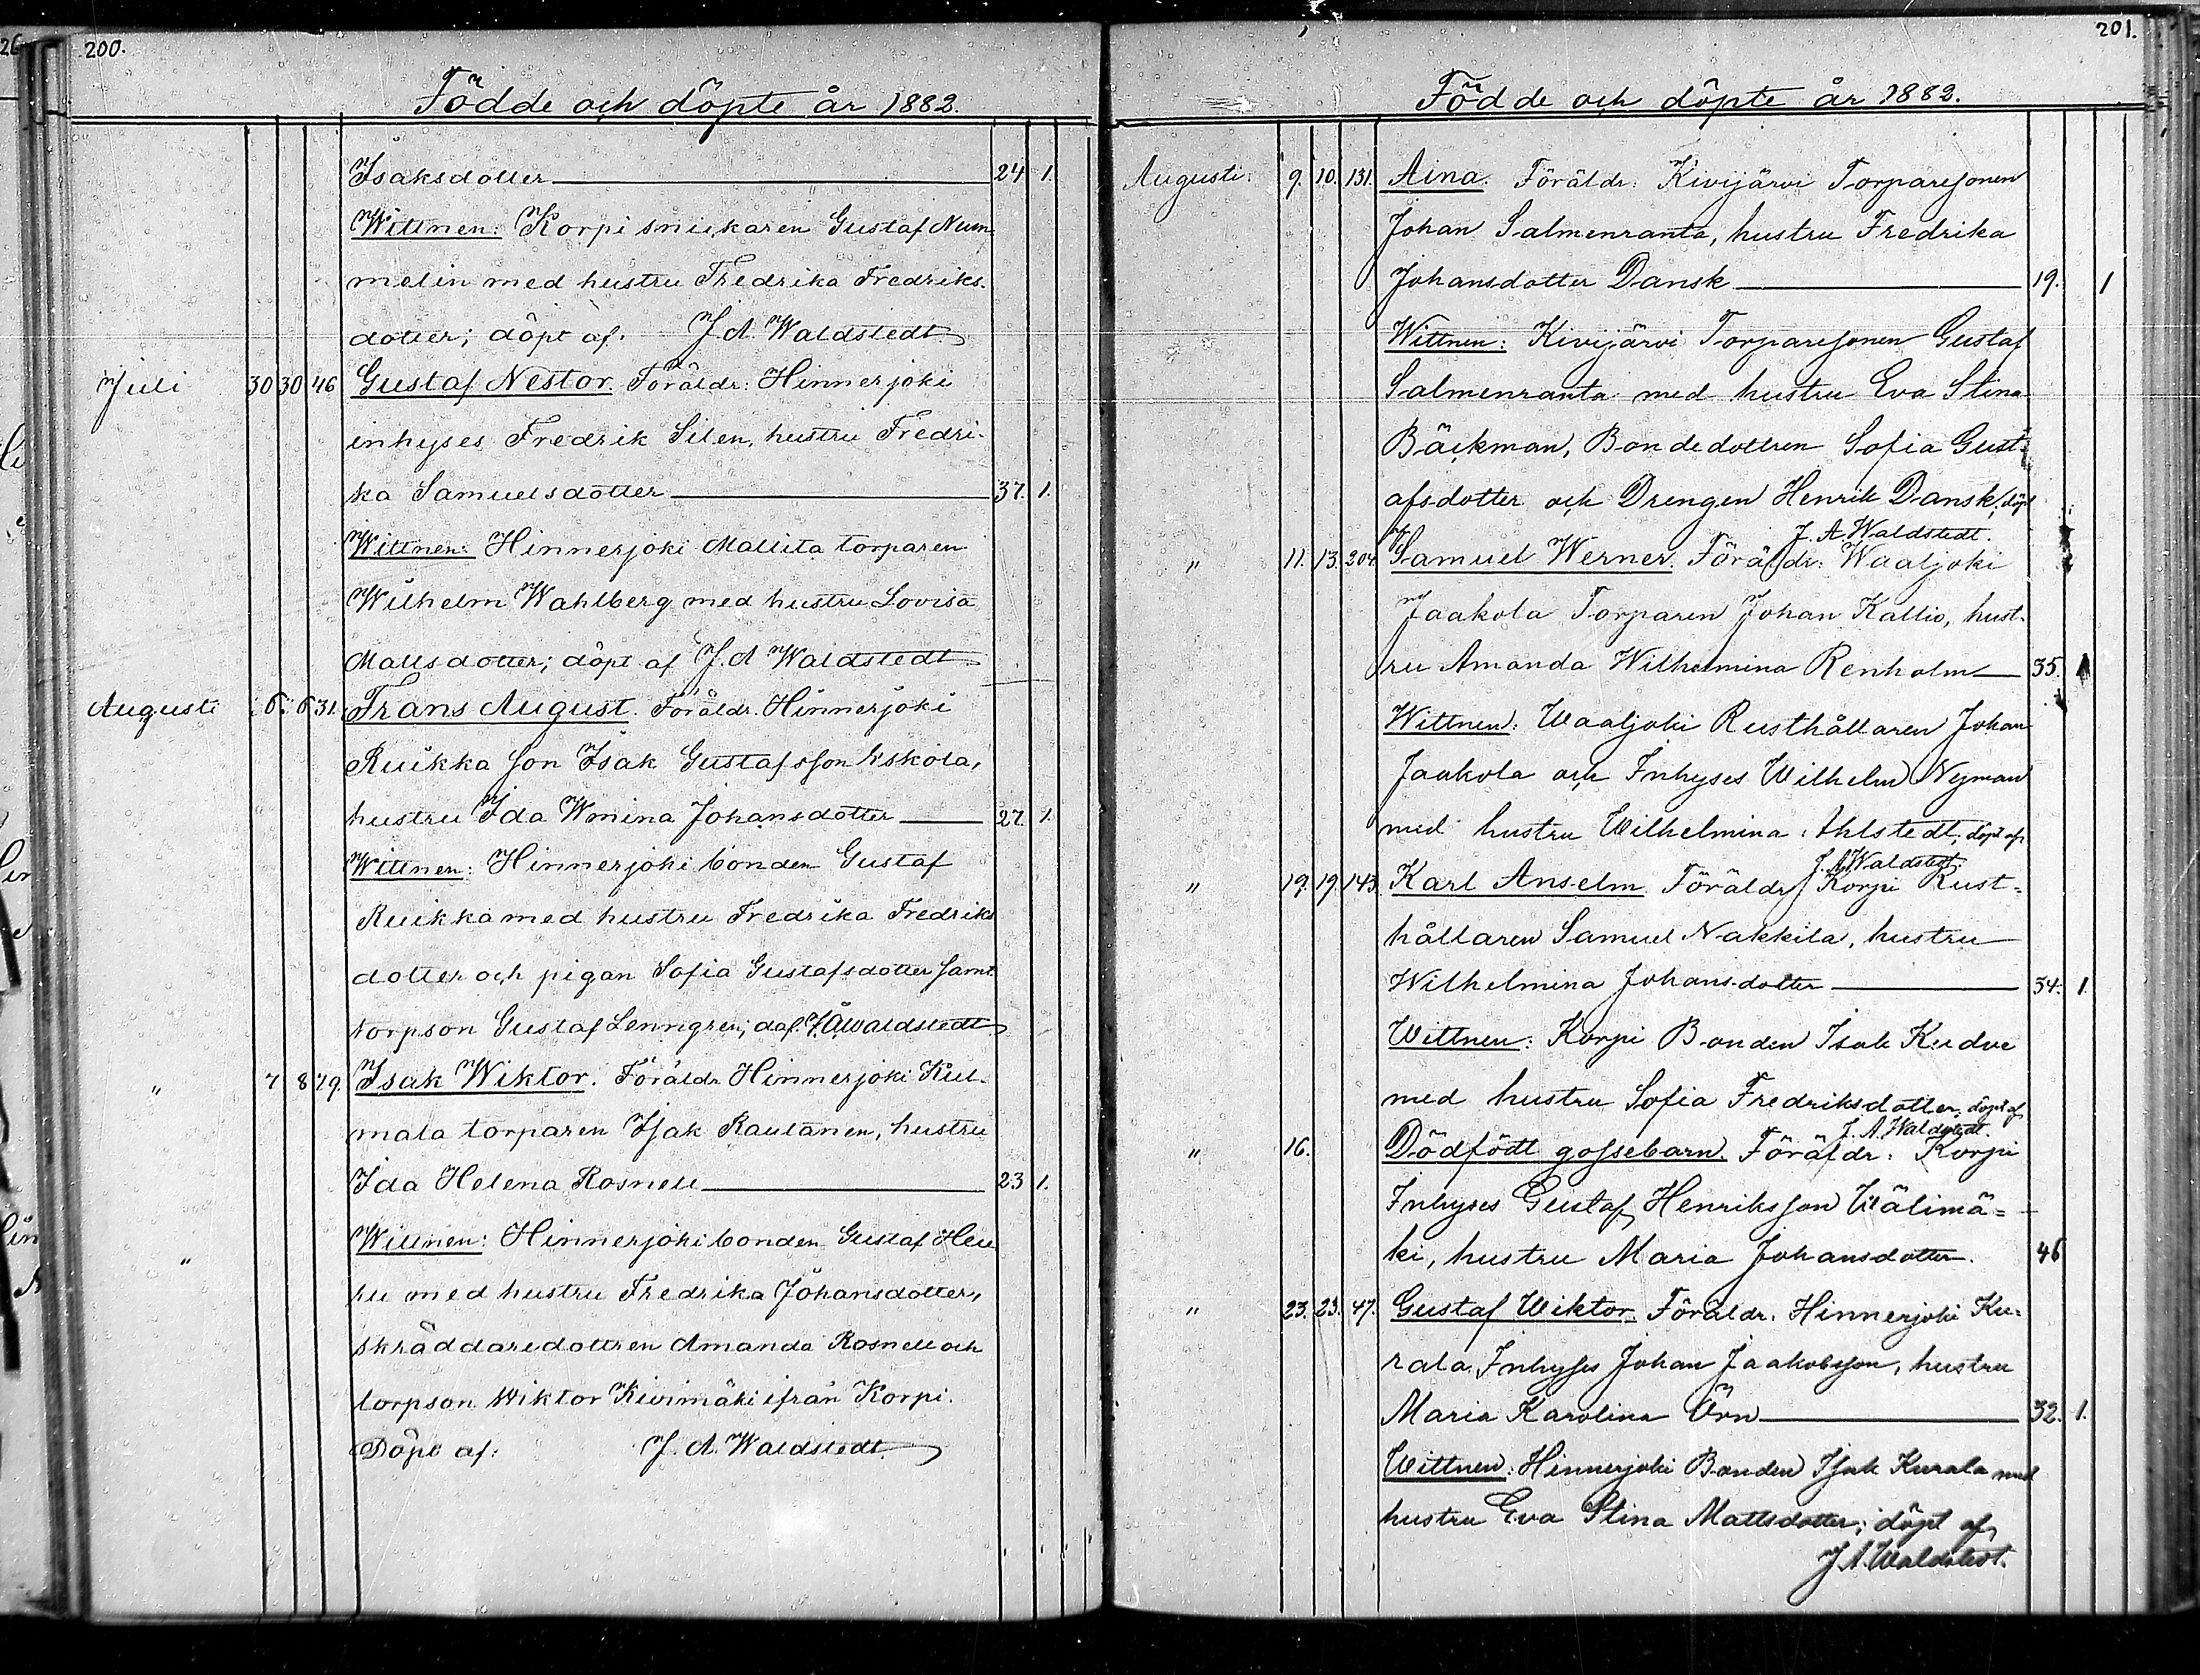 200.
Födde och döpte år 1882.
Isaksdotter 24 1.
Wittnen: Korpi snickaren Gustaf Num
melin med hustru Fredrika Fredriks.
dotter; döpt af. J. A. Waldstedt
Juli 30 30 46 Gustaf Nestor. Föräldr: Hinnerjoki
inhyses Fredrik Silen, hustru Fredri-
ka Samuelsdotter 37. 1.
Wittnen: Hinnerjoki Mallita torparen
Wilhelm Wahlberg med hustru Lovisa
Mattsdotter; döpt af J. A. Waldstedt
Augusti 6. 6 31. Frans August. Föräldr. Hinnerjoki
Ruikka son Isak Gustafsson Eskola,
hustru Ida Wmina Johansdotter 27. 1.
Wittnen: Hinnerjoki bonden Gustaf
Ruikka med hustru Fredrika Fredriks
dotter och pigan Sofia Gustafsdotter samt
torpson Gustaf Lenngren; d. af. J. A. Waldstedt
" 7 8 79. Isak Wiktor. Föräldr Hinnerjoki Kul-
mala torparen Isak Rautanen, hustru
Ida Helena Rosnell 23 1.
" Wittnen: Hinnerjoki bonden Gustaf Heu
ru med hustru Fredrika Johansdotter,
skräddaredottren Amanda Rosnell och
torpson Wiktor Kivimäki ifrån Korpi.
Döpt af: J. A. Waldstedt
201.
Födde och döpte år 1882.
Augusti: 9. 10. 131. Aina. Föräldr: Kivijärvi Torparesonen
Johan Salmenranta, hustru Fredrika
Johansdotter Dansk 19. 1
Wittnen: Kivijärvi Torparesonen Gustaf
Salmenranta med hustru Eva Stina
Bäckman, Bondedottren Sofia Gust-
afsdotter och Drengen Henrik Dansk; döpt
J. A. Waldstedt.
" 11. 13. 204. Samuel Werner. Föräldr: Waaljoki
Jaakola Torparen Johan Kallio, hust-
ru Amanda Wilhelmina Renholm 35. 1
Wittnen: Waaljoki Rusthållaren Johan
Jaakola och Inhyses Wilhelm Nyman
med hustru Wilhelmina Ahlstedt; döpt af
J. A. Waldstedt.
" 19. 19. 143. Karl Anselm Föräldr Korpi Rust=
hållaren Samuel Nakkila, hustru
Wilhelmina Johansdotter 34. 1.
Wittnen: Korpi Bonden Isak Kudve
med hustru Sofia Fredriksdotter; döpt af
J. A. Waldstedt.
" 16. Dödfödt gossebarn. Föräldr: Korpi
Inhyses Gustaf Henriksson Wälimä=
ki, hustru Maria Johansdotter. 46
" 23. 23. 47. Gustaf Wiktor. Föräldr. Hinnerjoki Ku=
rala Inhyses Johan Jaakobsson, hustru
Maria Karolina Örn 32. 1.
Wittnen: Hinnerjoki Bonden Isak Kurala med
hustru Eva Stina Mattsdotter; döpt af
J. A. Waldstedt.